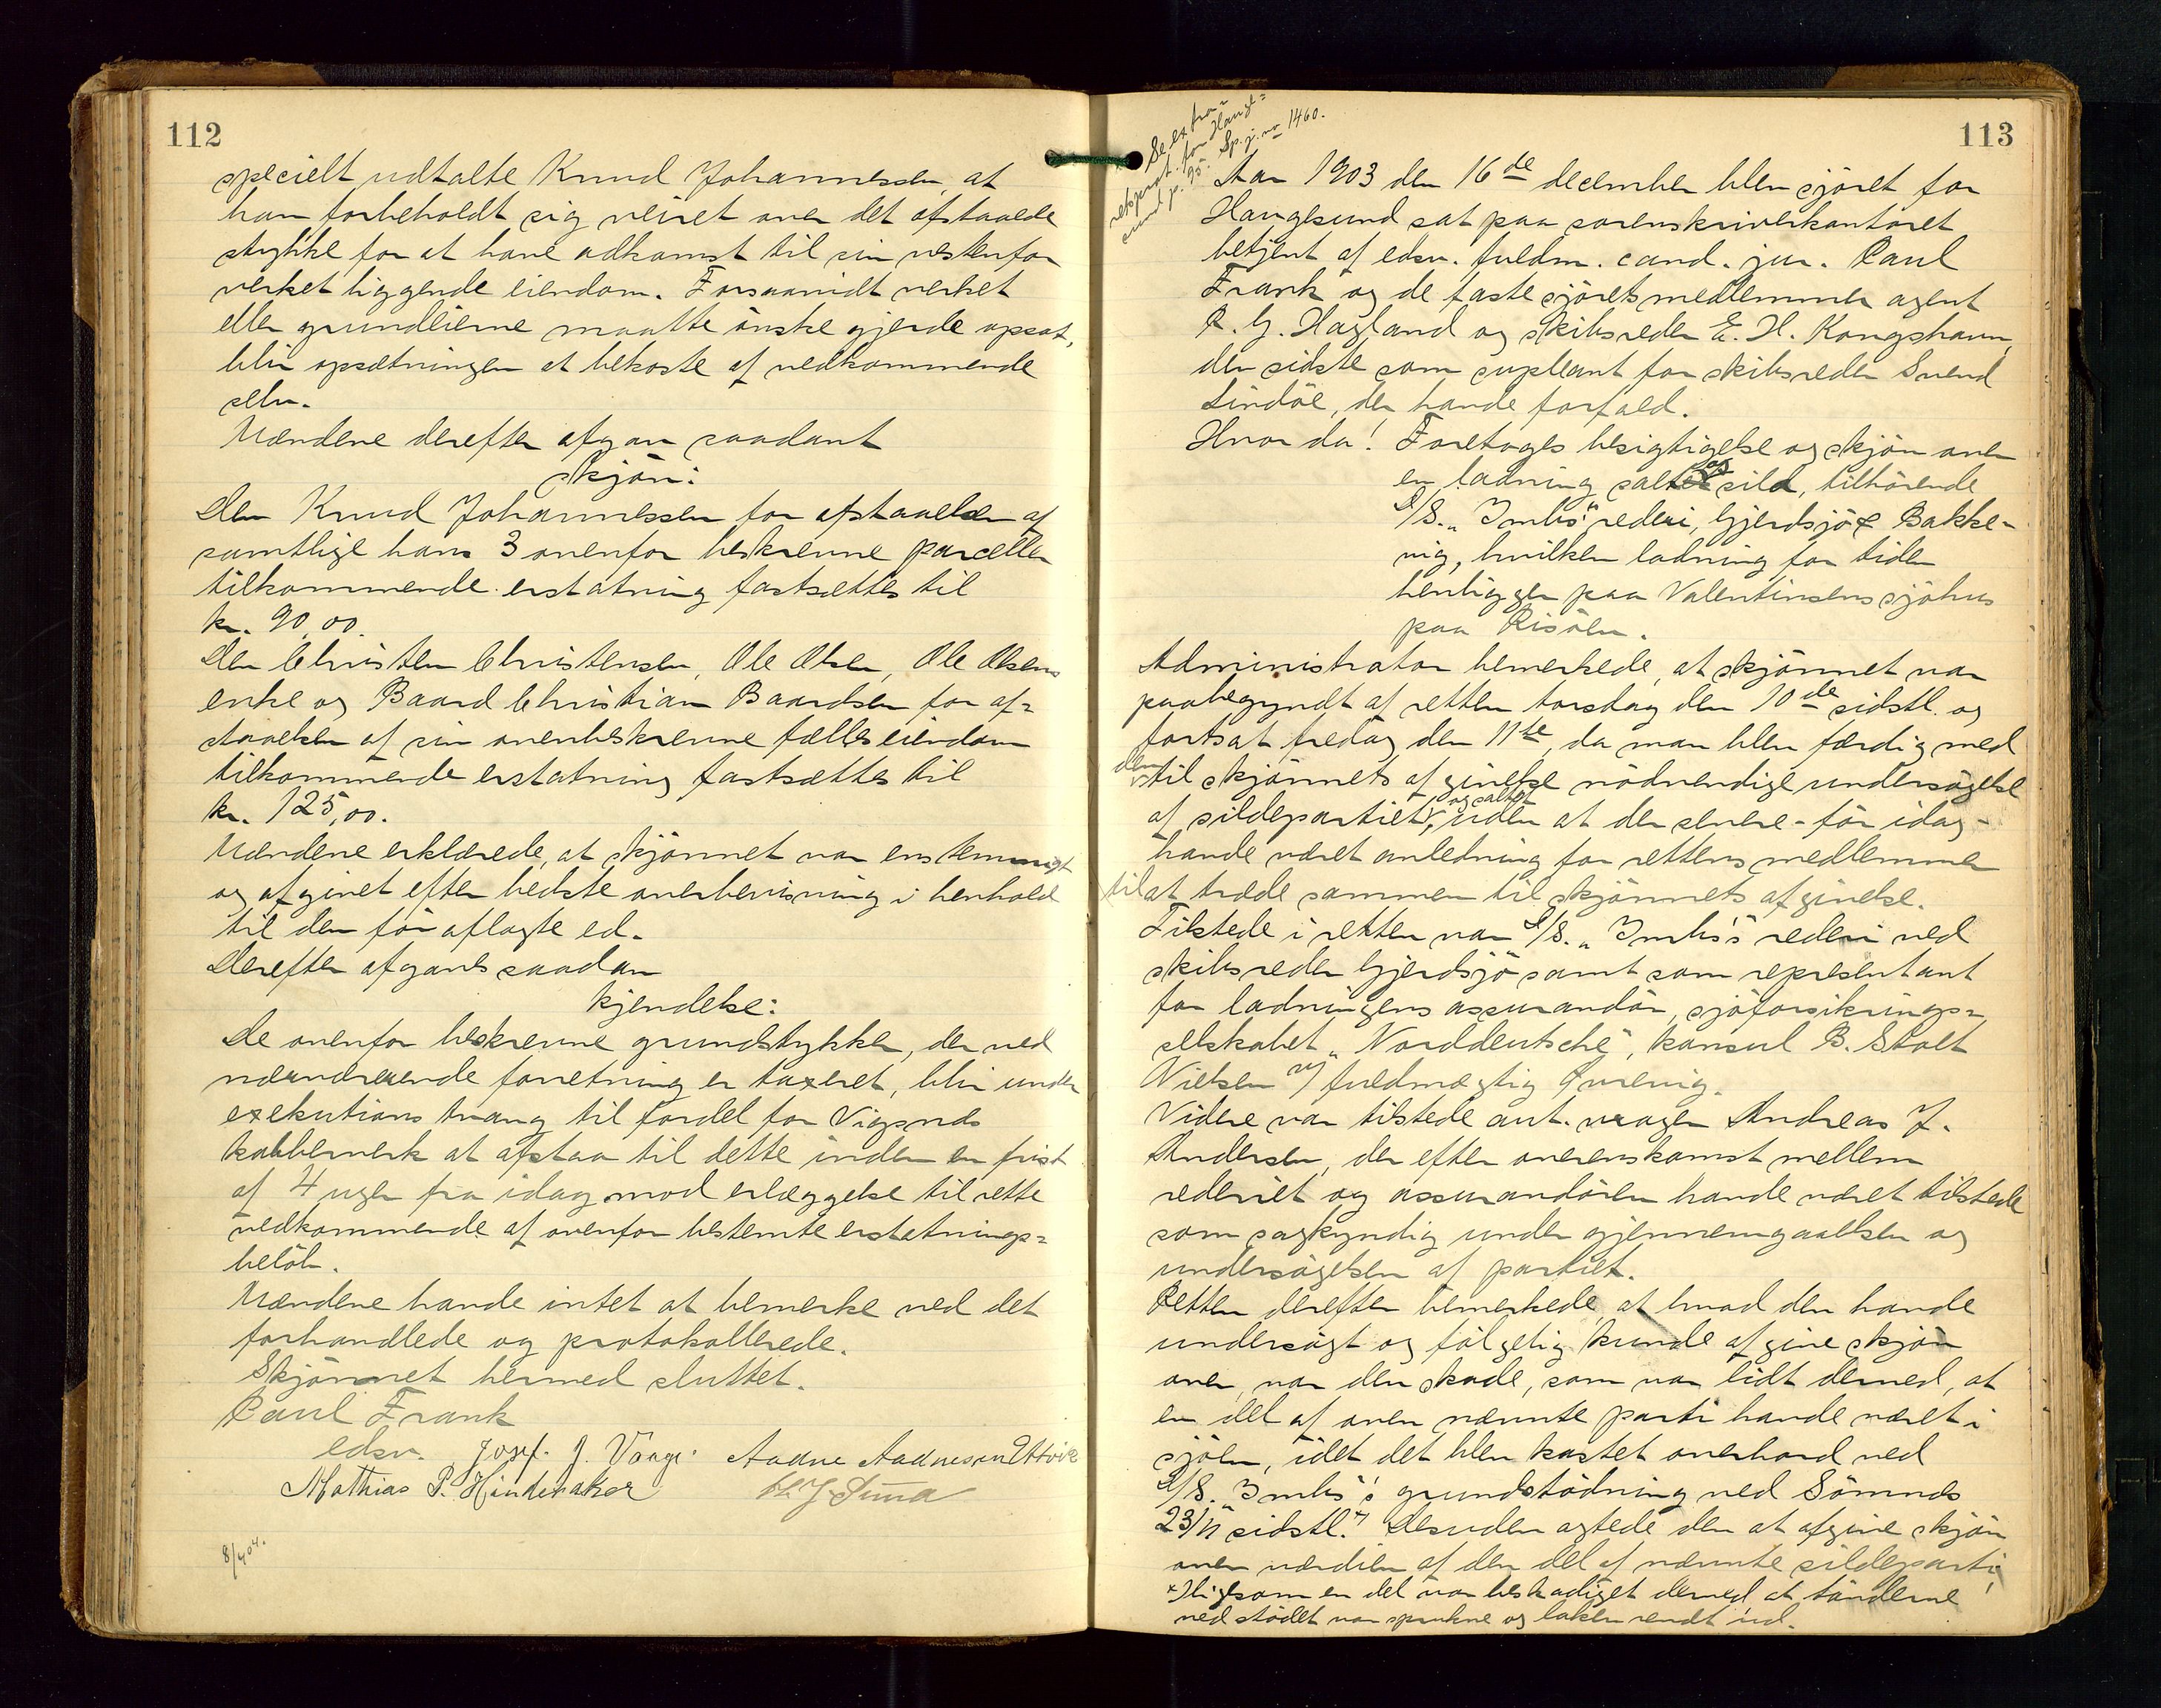 112
specielt udtalte Knud Johannessen, at
han forbeholdt sig veiret over det afstaaede
stykke for at have adkomst til sin vestenfor
verket liggende eiendom. Forsaavidt verket
eller grundeierne maatte önske gjerde opsat,
blir opsætningen at bekoste af vedkommende
selv.
Mændene derefter afgav saadant
skjön:
Den Knud Johannessen for afstaaelsen af
samtlige hans 3 ovenfor beskrevne parceller
tilkommende erstatning fastsættes til
kr. 90,00.
Den Christen Christensen, Ole Olsen, Ole Olsens
enke og Baard Christian Baardsen for af=
staaelsen af sin ovenbeskrevne fælleseiendom
tilkommende erstatning fastsættes til
kr. 125,00.
Mændene erklærede, at skjönnet var enstemmigt
og afgivet efter bedste overbevisning i henhold
til den för aflagte ed.
Derefter afgaves saadan
kjendelse:
De ovenfor beskrevne grundstykker, der ved
nærværende forretning er taxeret, blir under
exekutions tvang til fordel for Vigsnes
kobberverk at afstaa til dette inden en frist
af 4 uger fra idag mod erlæggelse til rette
vedkommende af ovenfor bestemte erstatnings=
belöb.
Mændene havde intet at bemerke ved det
forhandlede og protokollerede.
Skjönnet hermed sluttet.
Paul Frank
edsv. Josef. J. Vaage. Aadne Aadnesen
Mathias P. Hinderaker
8/4 04.
113
Se extra=
retsprot. for Hauge=
sund p. 95. Sp.j. no 1460.
Aar 1903 den 16de december blev sjöret for
Haugesund sat paa sorenskriverkontoret
betjent af edsv. fuldm. cand. jur. Paul
Frank og de faste sjöretsmedlemmer agent
P. G. Hagland og skibsreder E. H. Kongshavn,
den sidste som supleant for skibsreder Svend
Lindöe, der havde forfald.
Hvor da! Foretoges besigtigelse og skjön over
en ladning saltet sild, tilhörende
D/S. "Imbs" rederi, Gjerdsjö & Bakke-
vig, hvilken ladning for tiden
henligger paa Valentinsens sjöhus
paa Risöen.
Administrator bemerkede, at skjönnet var
paabegyndt af retten torsdag den 10de sidstl. og
fortsat fredag den 11te, da man blev færdig med
den til skjönnets afgivelse nödvendige undersögelse
af sildepartiet, og saltet uden at der senere - för idag -
havde været anledning for rettens medlemmer
til at træde sammen til skjönnets afgivelse.
Tilstede i retten var D/S. "Imbs's rederi ved
skibsreder Gjerdsjö samt som representant
for ladningens assurandör, sjöforsikrings=
selskabet "Norddeutsche", konsul B. Stolt
Nielsen v/ fuldmægtig
Videre var tilstede aut. vrager Andreas J.
Andersen, der efter overenskomst mellem
rederiet og assurandören havde været tilstede
som sagkyndig under gjennemgaaelsen og
undersögelsen af partiet.
Retten derefter bemerkede, at hvad den havde
undersögt og fölgelig kunde afgive skjön
over, var den skade, som var lidt derved, at
en del af oven nævnte parti havde været i
sjöen, idet det blev kastet overbord ved
D/S. "Imbs"'s grundstödning ved Sömnes
23/11 sidstl. x) Desuden agtede den at afgive skjön
over værdien af den del af nævnte sildeparti,
x Ligesom en del var beskadiget derved, at tönderne
ved stödet var sprukne og laken rendt ud.